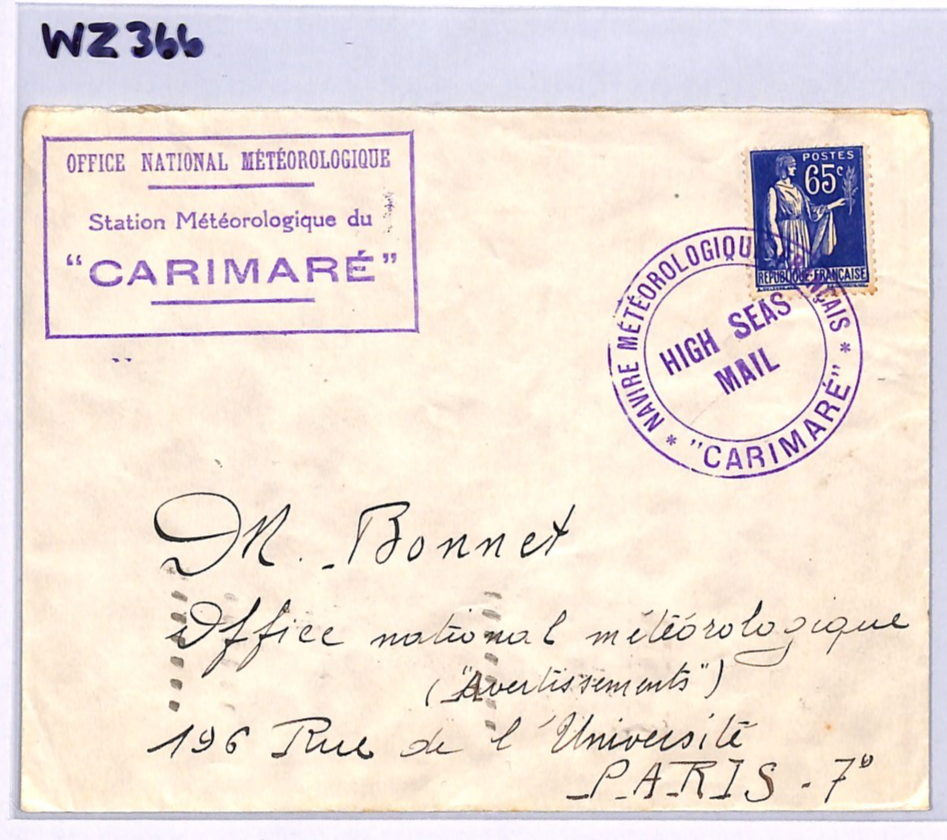 WZ366
OFFICE NATIONAL MÉTÉOROLOGIQUE
Station Météorologique du
“CARIMARÉ”
POSTES
65c
REPUBLIQUE FRANÇAISE
NAVIRE MÉTÉOROLOGIQUE FRANÇAIS * "CARIMARÉ" *
HIGH SEAS
MAIL
M. Bonnet
Office national météorologique
("Avertissements")
196 Rue de l'Université
PARIS - 7e